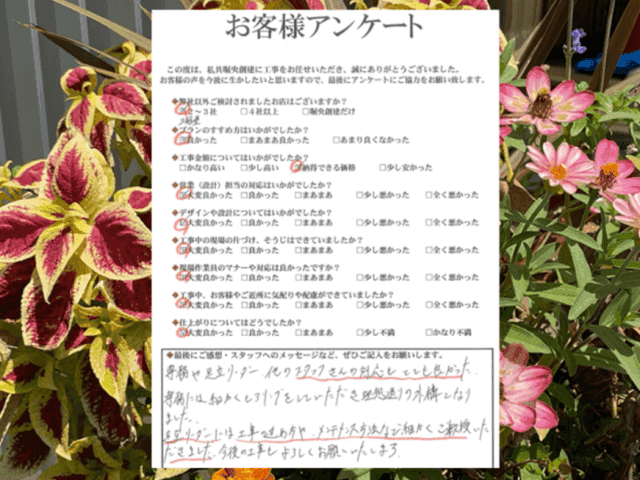 お客様アンケート
この度は、私共堀央創建に工事をお任せいただき、誠にありがとうございました。
お客様の声を今後に生かしたいと思いますので、最後にアンケートにご協力をお願い致します。
◆弊社以外ご検討されましたお店はございますか？
□2～3社 □4社以上 □堀央創建だけ
◆プランのすすめ方はいかがでしたか？
□良かった □まあまあ良かった □あまり良くなかった
◆工事金額についてはいかがでしたか？
□かなり高い □少し高い □納得できる価格 □少し安かった
◆営業（設計）担当の対応はいかがでしたか？
□大変良かった □良かった □まあまあ □少し悪かった □全く悪かった
◆デザインや設計についてはいかがでしたか？
□大変良かった □良かった □まあまあ □少し悪かった □全く悪かった
◆工事中の現場の片づけ、そうじはできていましたか？
□大変良かった □良かった □まあまあ □少し悪かった □全く悪かった
◆現場作業員のマナーや対応は良かったですか？
□大変良かった □良かった □まあまあ □少し悪かった □全く悪かった
◆工事中、お客様やご近所に気配りや配慮ができていましたか？
□大変良かった □良かった □まあまあ □少し悪かった □全く悪かった
◆仕上がりについてはどうでしたか？
□大変良かった □良かった □まあまあ □少し不満 □かなり不満
◆最後にご感想・スタッフへのメッセージなど、ぜひご記入をお願いします。
専務や足立リーダー、他のスタッフさんの対応もとても良かった。
専務には細かくヒアリングをしていただき理想通りの外構になり
ました。
リーダーには工事の進め方や、メンテナンス方法など細かくご教授いた
だきました。今後の工事もよろしくお願いいたします。